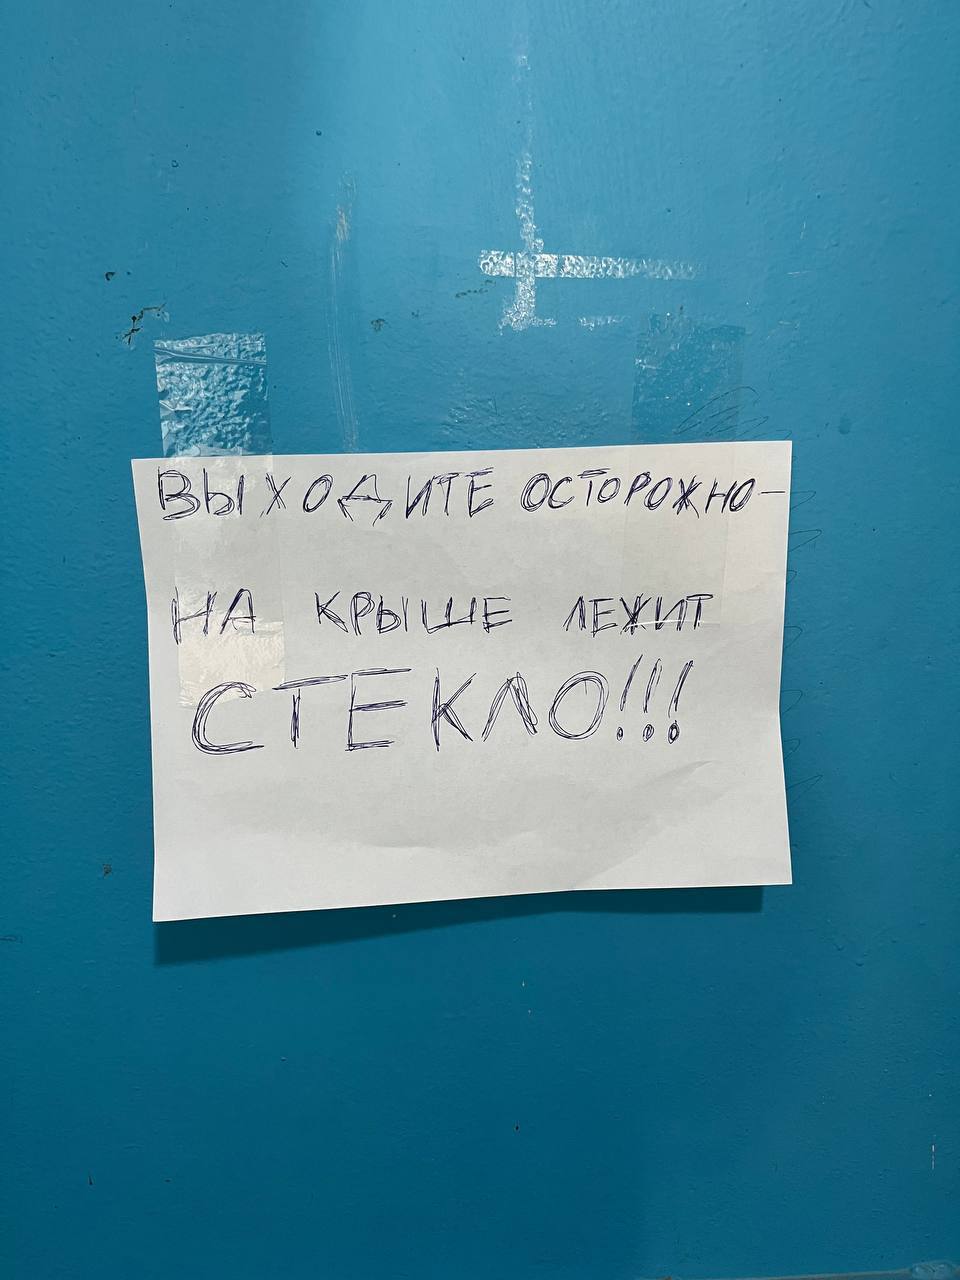 ВЫХОДИТЕ ОСТОРОЖНО —
НА КРЫШЕ ЛЕЖИТ
СТЕКЛО!!!